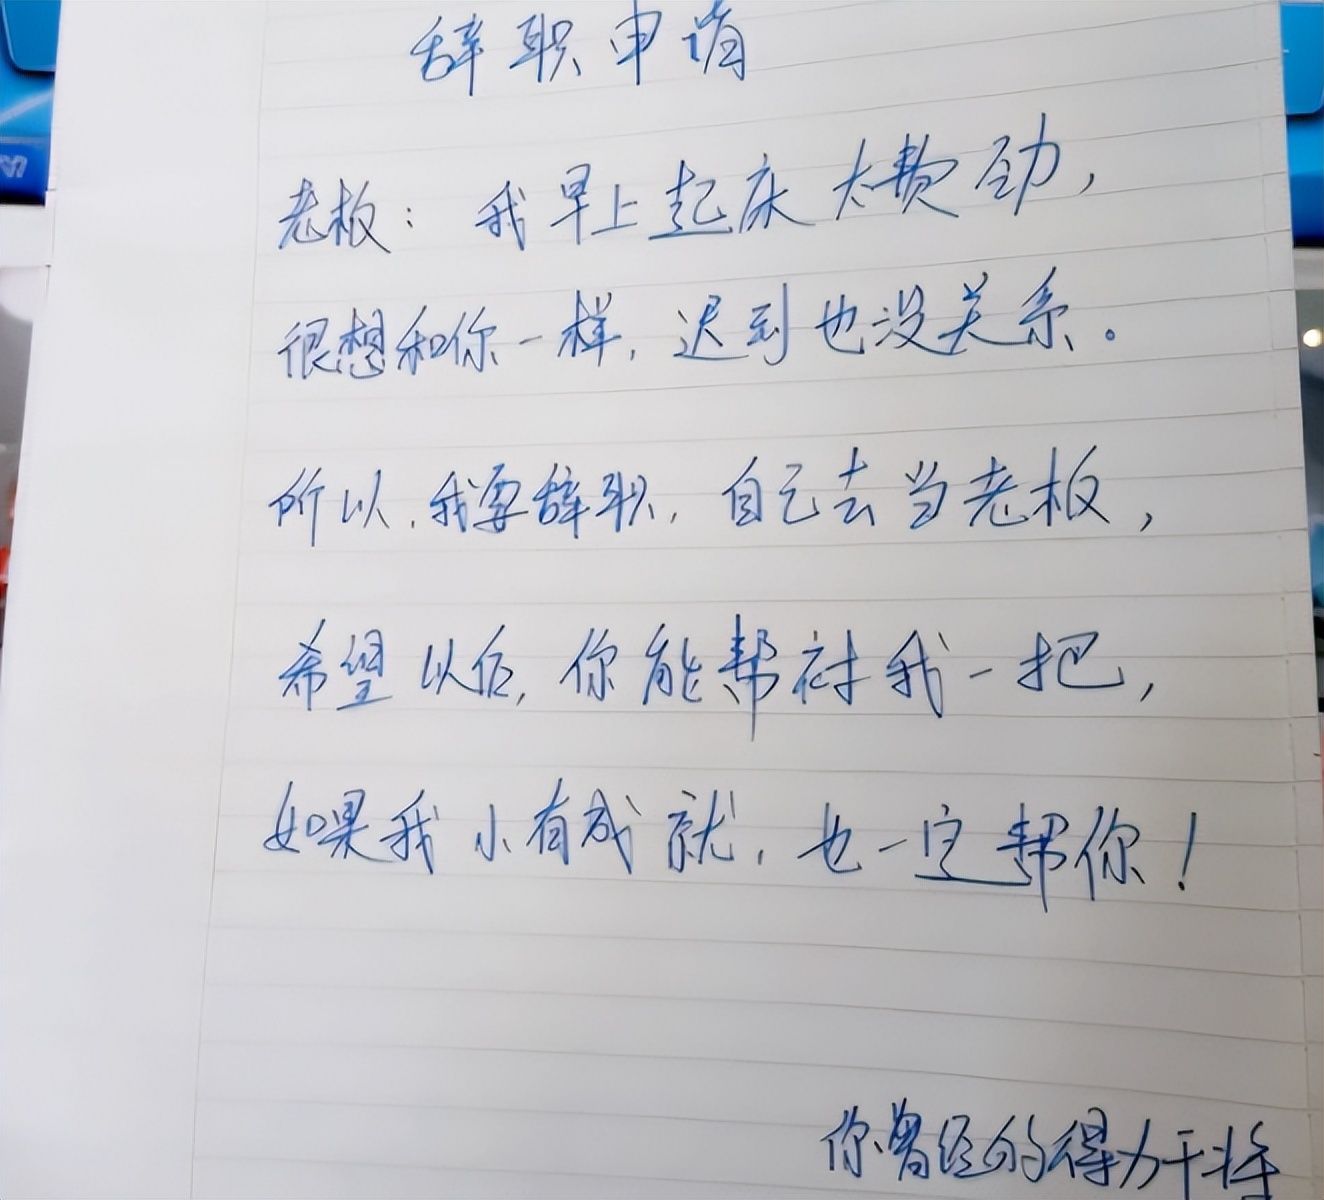 辞职申请
老板：我早上起床太费劲，
很想和你一样，迟到也没关系。
所以，我要辞职，自己去当老板，
希望以后，你能帮衬我一把，
如果我小有成就，也一定帮你！
你曾经的得力干将